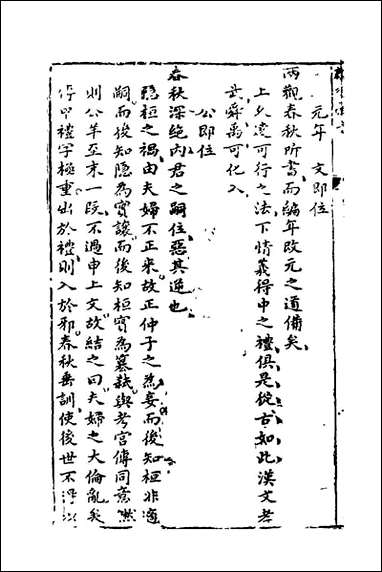 元年　文即位
兩觀春秋所書而編年改元之道備矣
上久遠可行之法下情義得中之禮俱是從古如此漢文孝
武舜禹可化入
公即位
春秋深絕內君之嗣位惡其逼也
隱桓之禍由夫婦不正來故正仲子之為妾而後知桓非適
嗣而後知隱為實讓而後知桓實為篡弒與考宮傳同意然
則公羊至末一段不過申上文故結之曰夫婦之大倫亂矣
行甲禮字極重出於禮則入於邪春秋垂訓使後世不得以